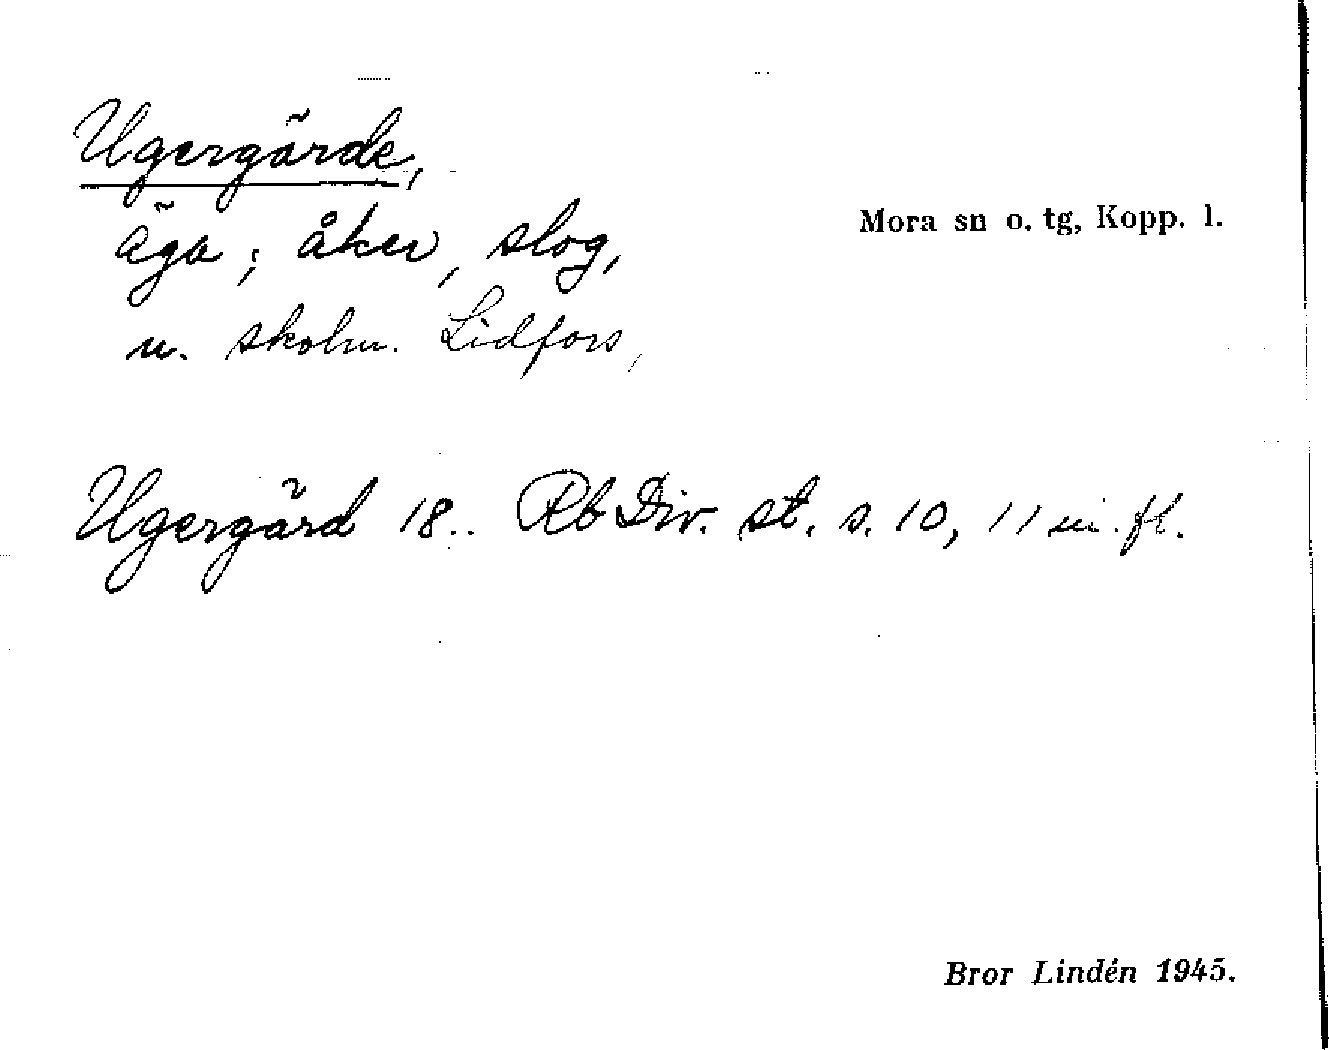 Ugergärde,
Mora sn o. tg, Kopp. l.
äga; åker, slog,
n. skolm. Lidfors,
Ugergärd 18.. Rb Div. st. s. 10, 11 m. fl.
Bror Lindén 1945.